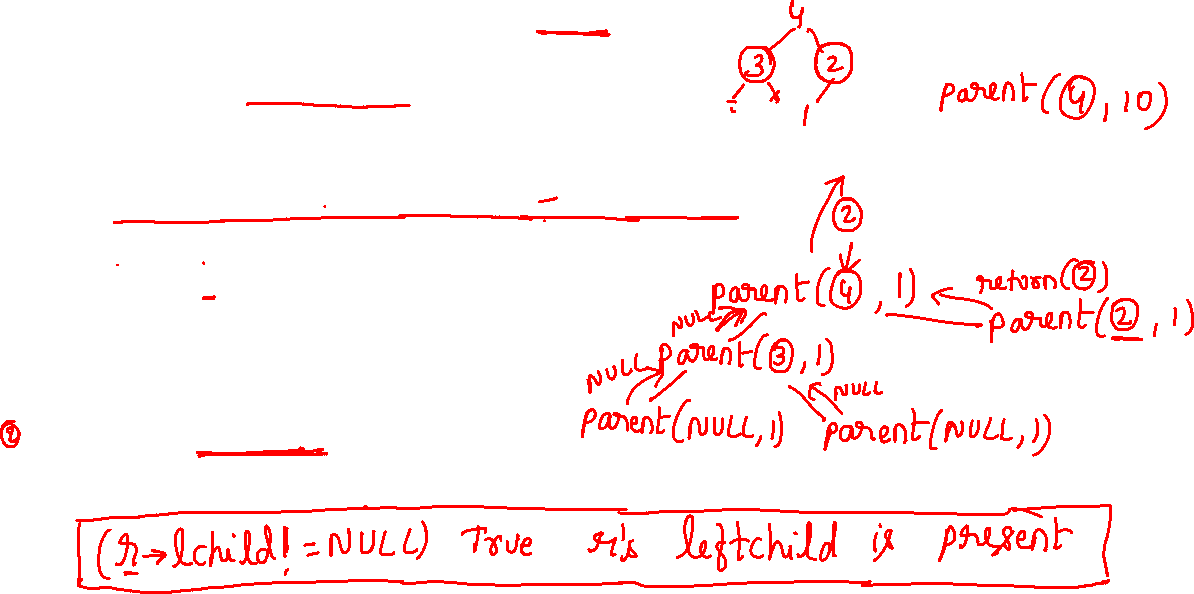 4
3 2
1
parent(4, 10)
2
parent(4, 1) return(2)
NULL parent(2, 1)
NULL parent(3, 1)
NULL
parent(NULL, 1) parent(NULL, 1)
2
(r→lchild! = NULL) True r's leftchild is present